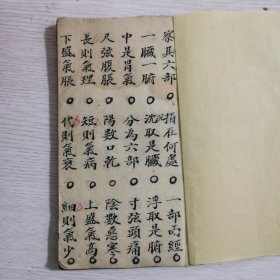 察其六部○指在何處○一部兩經
一臟一腑○沈取是臟○浮取是腑
中是胃氣○分為六部○寸弦頭痛
尺弦腹脹○陽數口乾○陰數惡寒
長則氣理○短則氣病○上盛氣高
下盛氣脹○代則氣衰○細則氣少